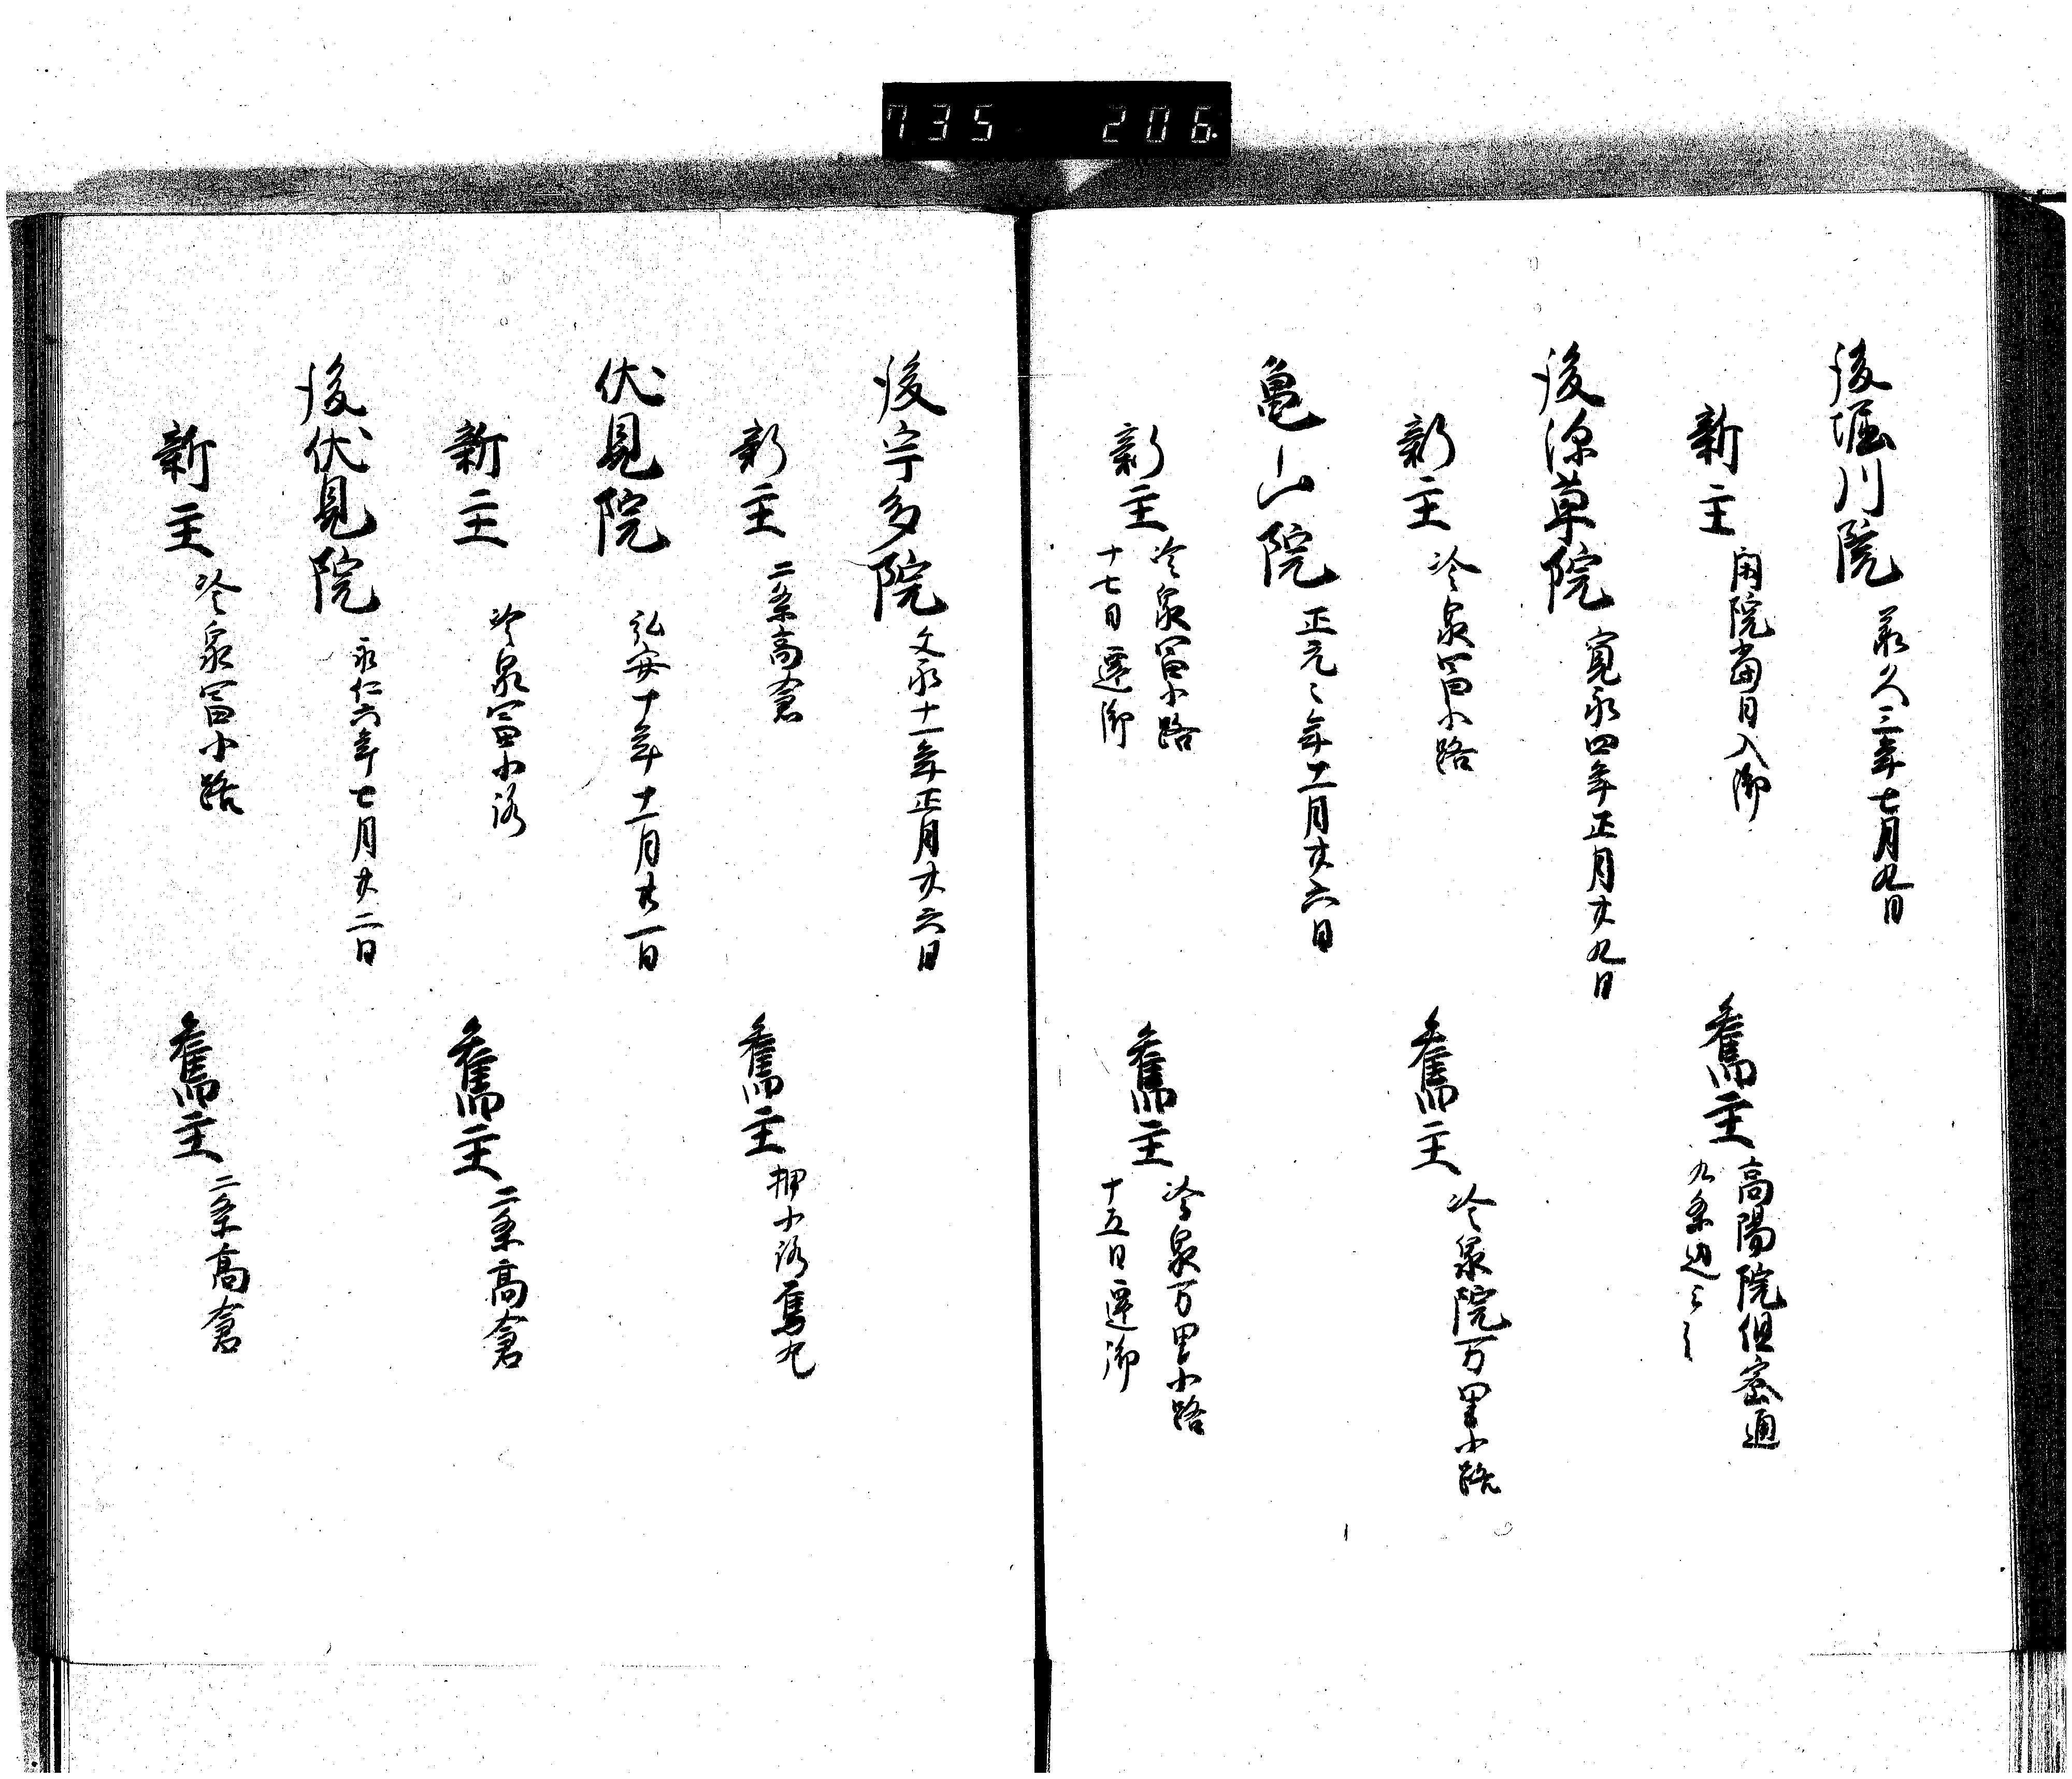 735 206
後堀川院 承久三年七月九日
新主 閑院当日入御
舊主 高陽院但密通
九条辺云々
後深草院 寛永四年正月廿九日
新主 冷泉冨小路
舊主 冷泉院万里小路
亀山院 正元々年十一月廿六日
新主 冷泉冨小路
十七日遷御
舊主 冷泉万里小路
十五日遷御
後宇多院 文永十一年正月廿六日
新主 二条高倉
舊主 押小路舊丸
伏見院 弘安十年十一月廿一日
新主 冷泉冨小路
舊主 二条高倉
後伏見院 永仁六年七月廿二日
新主 冷泉冨小路
舊主 二条高倉